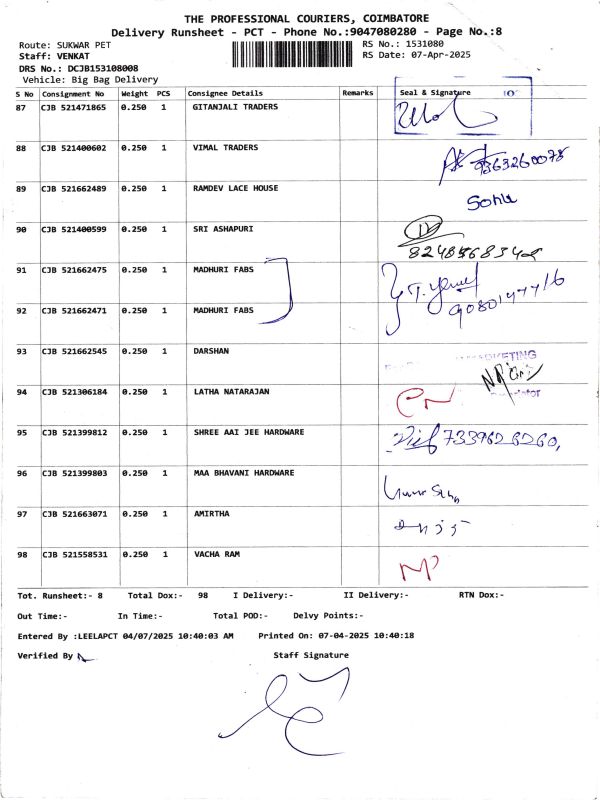 THE PROFESSIONAL COURIERS, COIMBATORE
Delivery Runsheet - PCT - Phone No.:9047080280 - Page No.:8
Route: SUKWAR PET RS No.: 1531080
Staff: VENKAT RS Date: 07-Apr-2025
DRS No.: DCJB153108008
Vehicle: Big Bag Delivery
S No Consignment No Weight PCS Consignee Details Remarks Seal & Signature
87 CJB 521471865 0.250 1 GITANJALI TRADERS
88 CJB 521400602 0.250 1 VIMAL TRADERS 9363260078
89 CJB 521662489 0.250 1 RAMDEV LACE HOUSE Sonu
90 CJB 521400599 0.250 1 SRI ASHAPURI
8248568342
91 CJB 521662475 0.250 1 MADHURI FABS
92 CJB 521662471 0.250 1 MADHURI FABS
93 CJB 521662545 0.250 1 DARSHAN
94 CJB 521306184 0.250 1 LATHA NATARAJAN
95 CJB 521399812 0.250 1 SHREE AAI JEE HARDWARE
96 CJB 521399803 0.250 1 MAA BHAVANI HARDWARE
97 CJB 521663071 0.250 1 AMIRTHA
98 CJB 521558531 0.250 1 VACHA RAM
Tot. Runsheet:- 8 Total Dox:- 98 I Delivery:- II Delivery:- RTN Dox:-
Out Time:- In Time:- Total POD:- Delvy Points:-
Entered By :LEELAPCT 04/07/2025 10:40:03 AM Printed On: 07-04-2025 10:40:18
Verified By Staff Signature